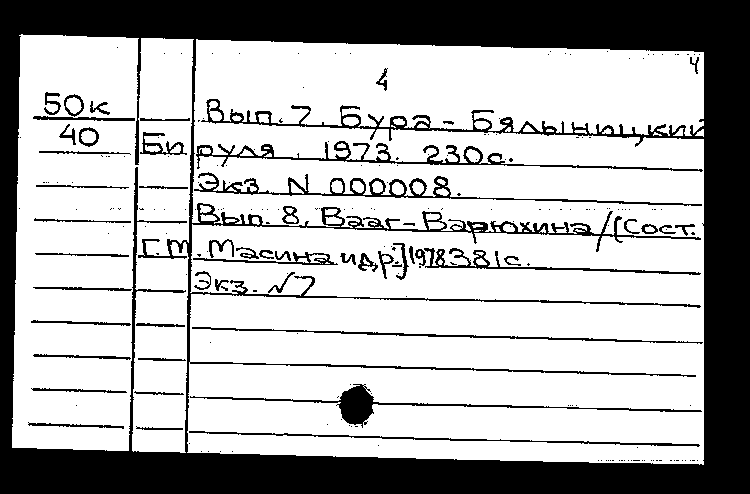 4
4
50к
Вып. 7. Бура - Бялыницкий
40
Би руля . 1973. 230с.
Экз. N 000008.
Вып. 8. Вааг-Варюхина/[Сост.
Г.М. Масина и др.] 1978 381с.
Экз. N7